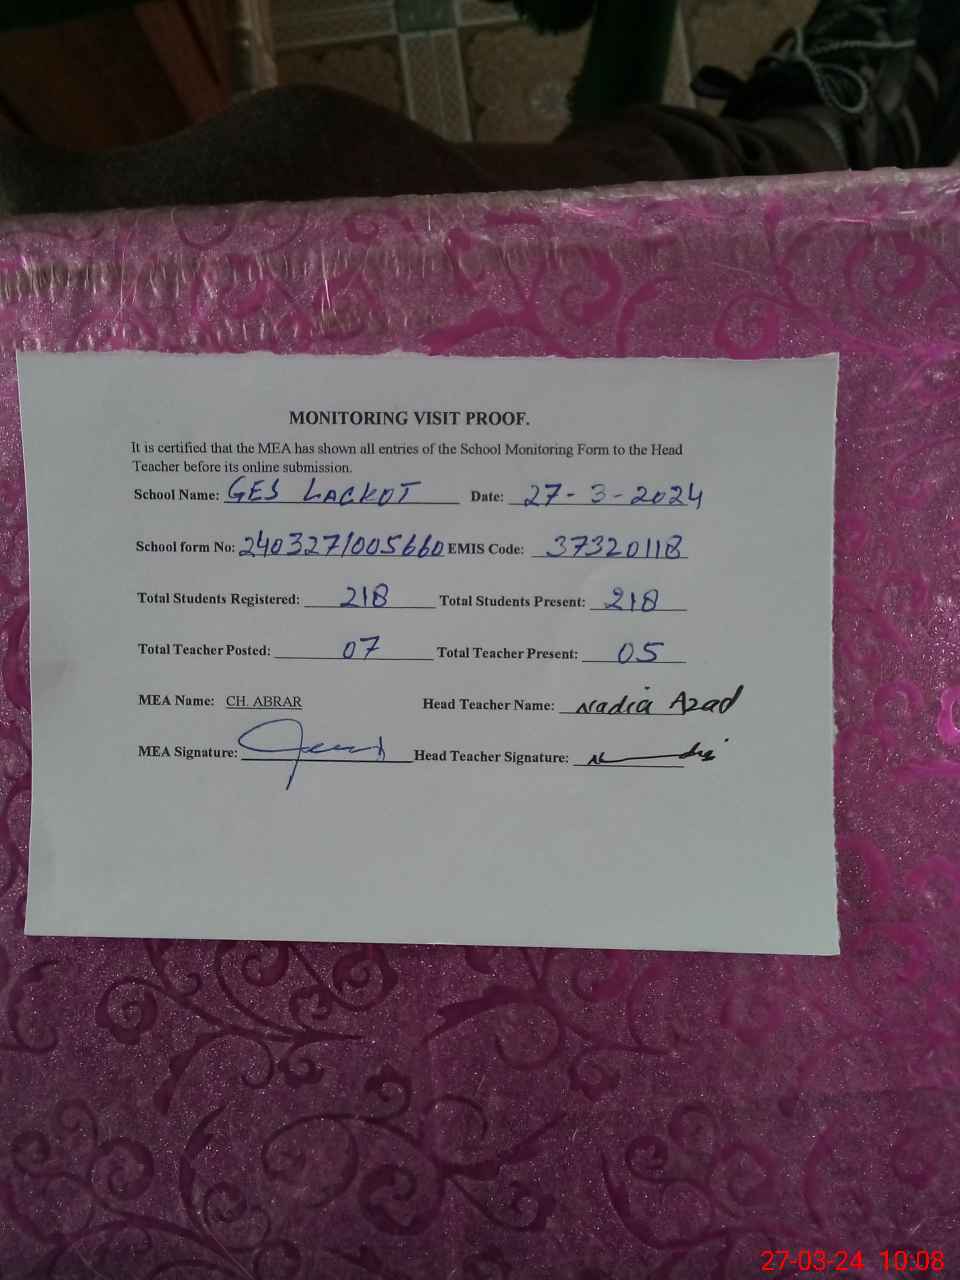 MONITORING VISIT PROOF.
It is certified that the MEA has shown all entries of the School Monitoring Form to the Head
Teacher before its online submission.
School Name: GES LACKOT Date: 27-3-2024
School form No: 2403271005660 EMIS Code: 37320118
Total Students Registered: 218 Total Students Present: 218
Total Teacher Posted: 07 Total Teacher Present: 05
MEA Name: CH. ABRAR Head Teacher Name: Nadia Azad
MEA Signature: Head Teacher Signature:
27-03-24 10:08